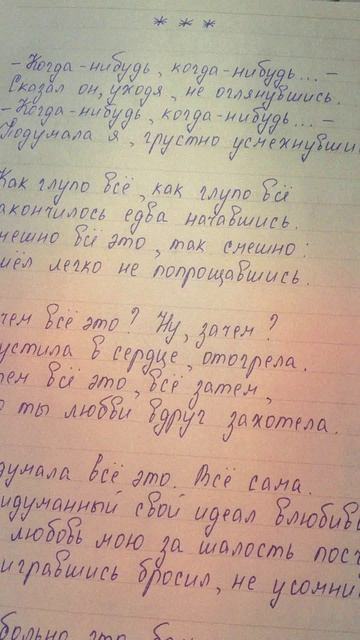 * * *
- Когда-нибудь, когда-нибудь... -
Сказал он, уходя, не оглянувшись.
- Когда-нибудь, когда-нибудь... -
Подумала я, грустно усмехнувши
Как глупо всё, как глупо всё
акончилось едва начавшись.
мешно всё это, так смешно:
шёл легко не попрощавшись.
чем всё это? Ну, зачем?
устила в сердце, отогрела.
чем всё это, всё затем,
о ты любви вдруг захотела.
думала всё это. Всё сама.
идуманный свой идеал влюбив
любовь мою за шалость посч
игравшись бросил, не усомни
больно это